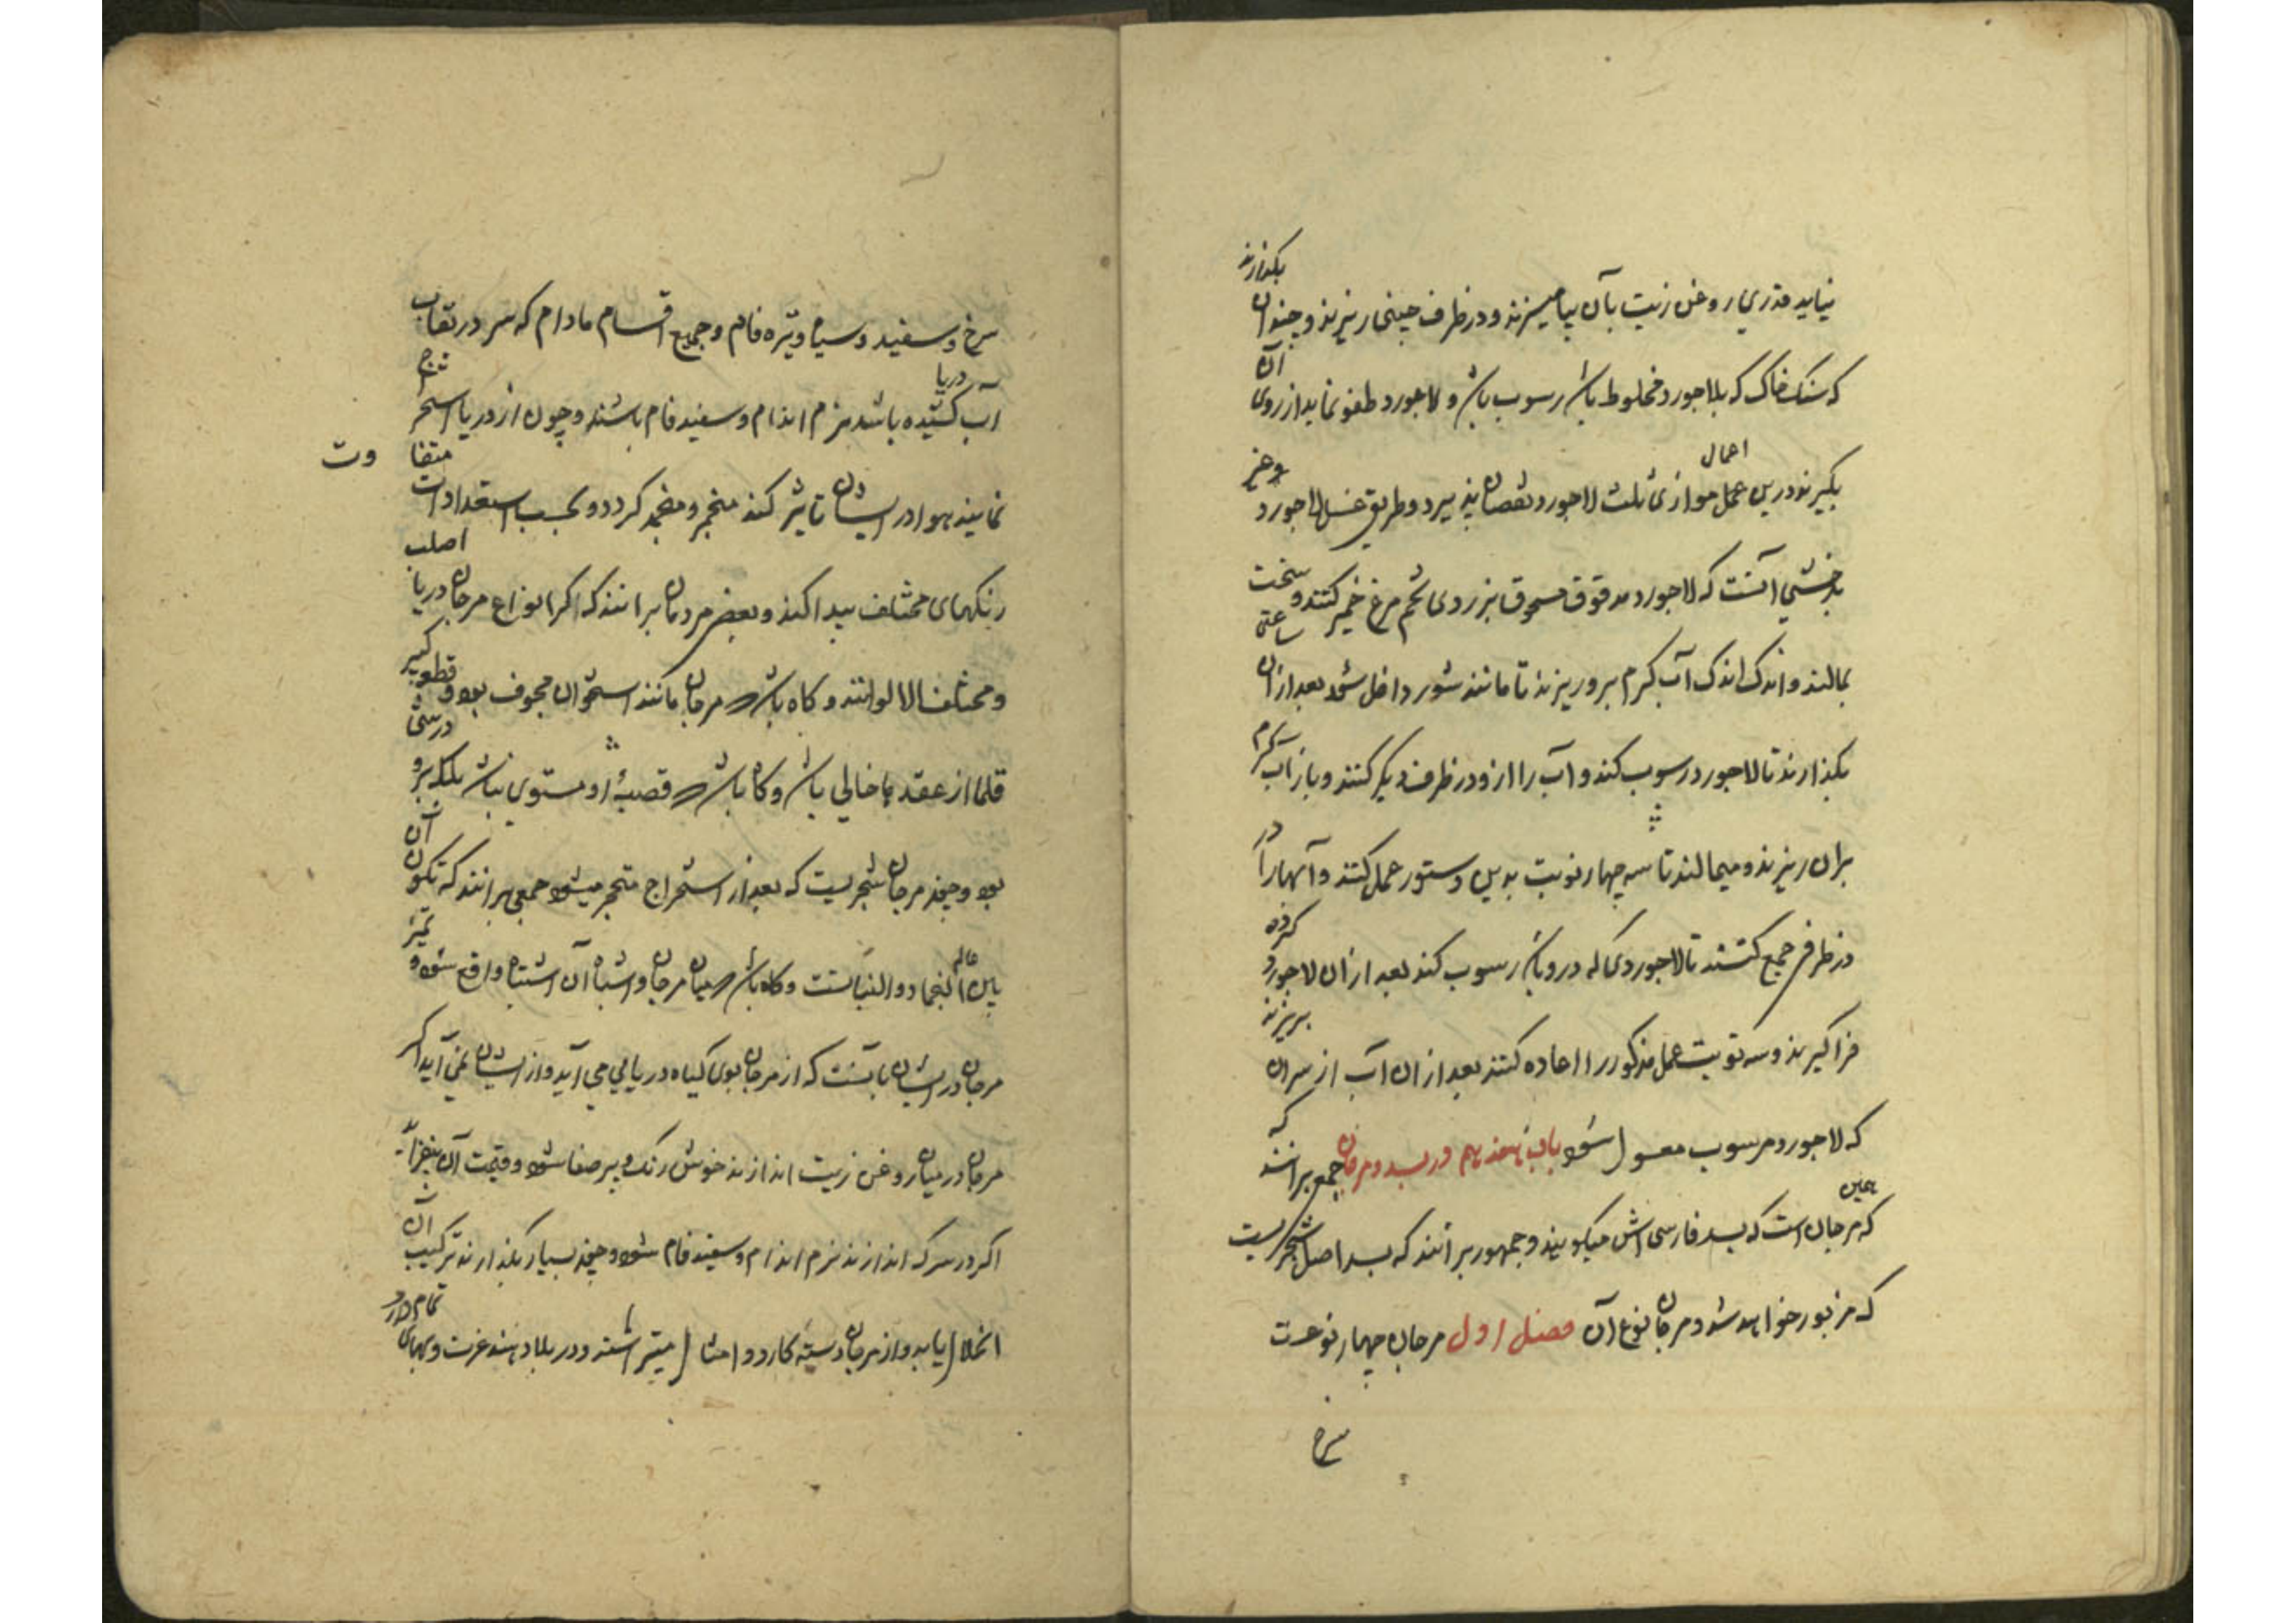 نیاید قدری روغن زیت بآن بیامیزند و در ظرف چینی ریزند و چندان بکذارند
که سنک خاک که بلاجورد مخلوط باشد رسوب باشد و لاجورد طفو نماید از روی آن
بکیرند درین عمل موازی ثلث لاجورد نقصان پذیرد و طریق غسل لاجورد
اهمال
بدخشی آنست که لاجورد مدقوق مسحوق بزردی تخم مرغ خمیر کنند و سخت
بمالند و اندک اندک آب کرم برو ریزند تا مانند شور داخل شود بعد ازان ساعتی
بکذارند تا لاجورد رسوب کند و آب را ازو در ظرف دیکر کنند و باز آب کرم
بران ریزند و میمالند تا سه چهار نوبت بدین دستور عمل کنند و آبهارا در
در ظرفی جمع کنند تا لاجوردی که درو باشد رسوب کند بعد ازان لاجورد کرفه
فرا کیرند و سه نوبت عمل مذکور را اعاده کنند بعد ازان آب از سران بریزند
که لاجورد مرسوب مغسول شود باب هفدهم در بسد و مرجان جمعی برانند که
که مرجان است که بسد فارسی اش میکویند و جمهور برانند که بسد اصل شجریست
همین
که مزبور خواهد شد و مرجان نوع آن فصل اول مرجان چهار نوعست
سرخ
سرخ و سفید و سیاه و تیره فام و جمیع اقسام مادام که سر در نقاب
آب دریا کشیده باشد نرم اندام و سفید فام باشند و چون از دریا استخراج
نمایند هوا در ایشان تاثیر کند متحجر و منجمد کردد و بحسب استعدادات متفاوت
رنکهای مختلف پیدا کند و بعضی مردمان برانند که اکر انواع مرجان دریا اصلب
و مختلف الالوانند و کاه باشد که مرجان مانند استخوان مجوف بود و قطعه کبیر
قلما از عقدها خالی باشد و کاه باشد که قصبهٔ او مستوی نباشد بلکه برو درستی
بود و چند مرجان شجریست که بعد از استخراج متحجر میشود جمعی برانند که تکون آن
باین عالم الجماد و النباتست و کاه باشد میان مرجان و اشباه آن اشتباه واقع شود و تمیز
مرجان در ایشان بآنست که از مرجان بوی کیاه دریایی می آید و از ایشان نمی آید اکر
مرجان در میان روغن زیت اندازند خوش رنک و پر صفا شود و قیمت آن بیفزاید
اکر در سرکه اندازند نرم اندام و سفید فام شود و چند بسیار بکذارند ترکیب آن
انحلال یابد و از مرجان دسته کارد و امثال میتراشند و در بلاد هند عزت و بهای تمام دارد